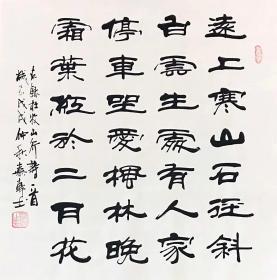 遠上寒山石径斜
白雲生處有人家
停車坐愛楓林晚
霜葉紅於二月花
右錄杜牧山行詩一首